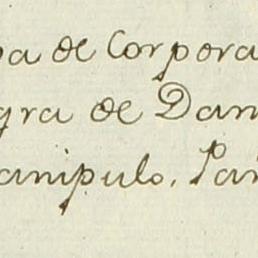 pa de Corpora
gra de Dam
anipulo, Pañ